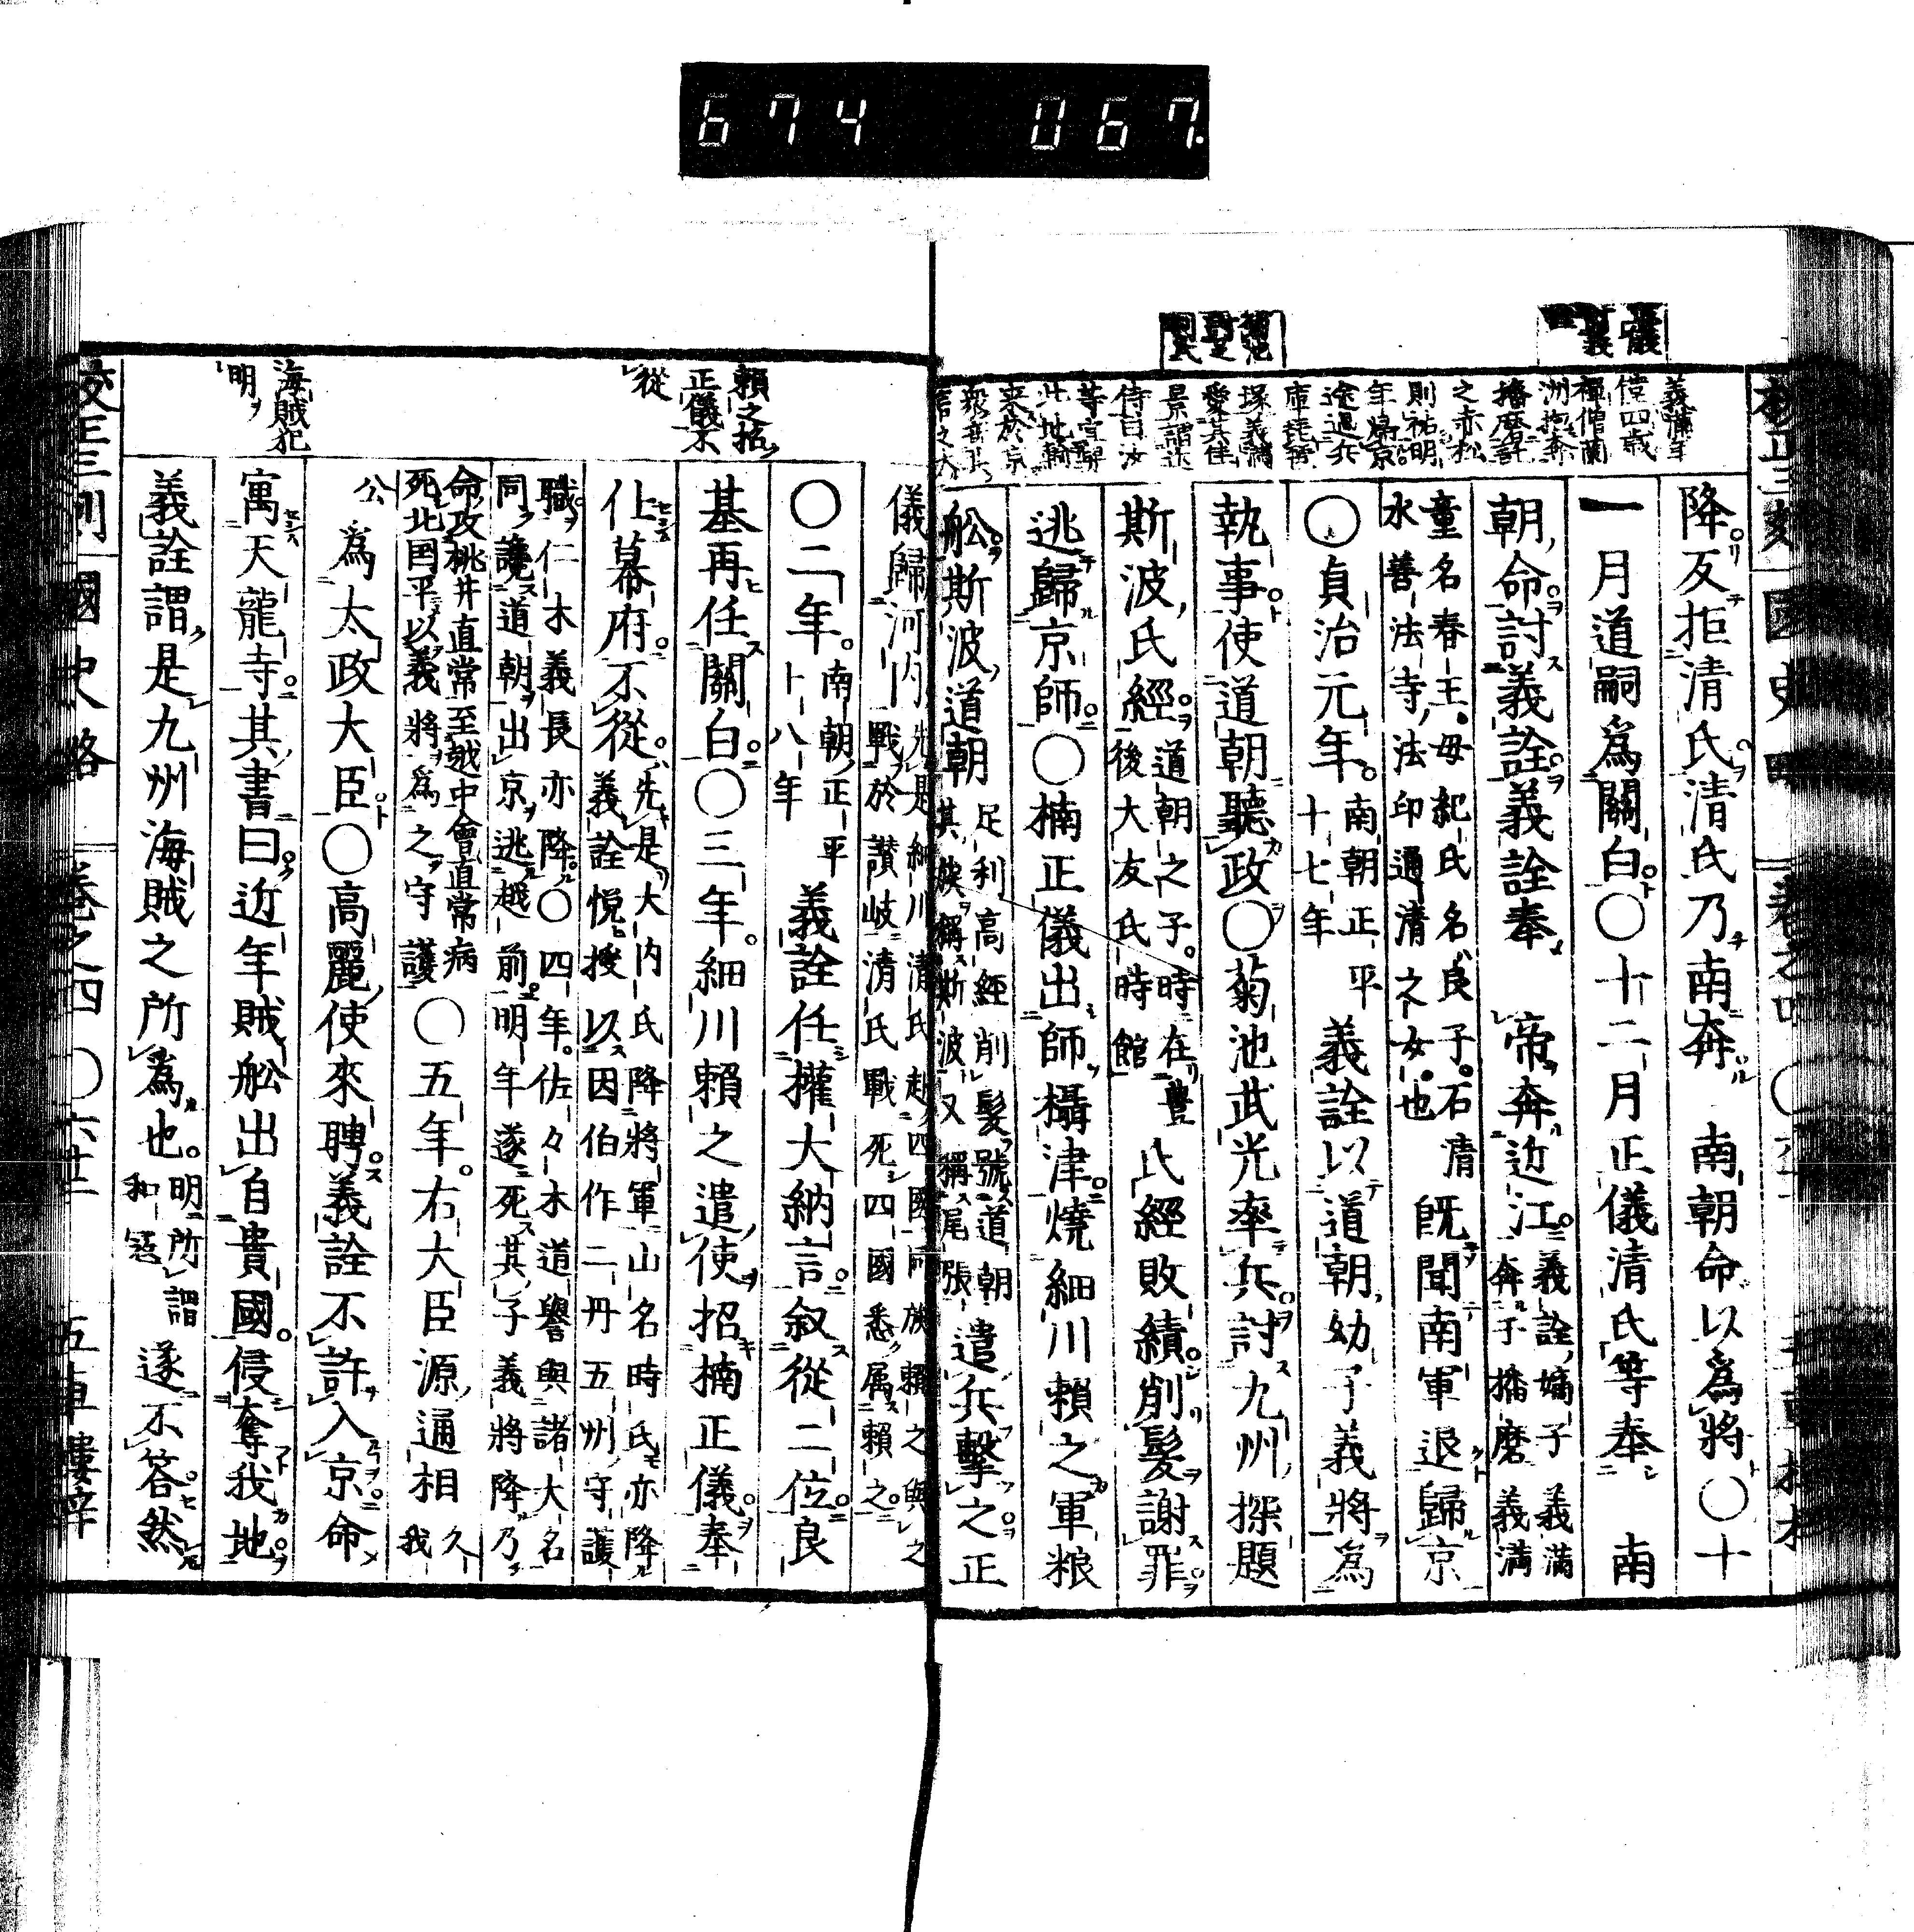 674 067
義満年
偉四歳
禪僧蘭
洲抱奔
播磨託
之赤松
則祐明
年歸京
途過兵
庫琵琶
塚義満
愛其佳
景謂近
侍曰汝
等宜舁
此地輸
來於京
降反拒清氏清氏乃南奔　南朝命以爲將〇十
一月道嗣爲關白〇十二月正儀清氏等奉　南
朝命討義詮義詮奉　帝奔近江義詮嫡子義滿奔于播磨義満
童名春王母紀氏名良子石清水善法寺法印通清之女也既聞南軍退歸京
〇貞治元年南朝正平十七年義詮以道朝幼子義將爲
執事使道朝聽政〇菊池武光率兵討九州探題
斯波氏經道朝之子時在豊後大友氏時館氏經敗績削髮謝罪
逃歸京師〇楠正儀出師攝津燒細川賴之軍粮
舩斯波道朝足利高經削髮號道朝其族稱斯波又稱尾張遣兵擊之正
儀歸河内先是細川清氏赴四國同族賴之與之戰於讃岐清氏戰死四國悉属賴之
〇二年南朝正平十八年義詮任權大納言叙從二位良
基再任關白〇三年細川賴之遣使招楠正儀奉
仕幕府不從先是大内氏降將軍山名時氏亦降義詮悦授以因伯作二丹五州守護
職仁木義長亦降〇四年佐々木道譽與諸大名同讒道朝出京逃越前明年遂死其子義將降乃
命攻桃井直常至越中會直常病死北国平以義將爲之守護〇五年右大臣源通相久我
公爲太政大臣〇高麗使來聘義詮不許入京命
寓天龍寺其書曰近年賊舩出自貴國侵奪我地
義詮謂是九州海賊之所爲也明所謂和寇遂不答然
賴之招
正儀不
從
海賊犯
明
國史略　卷之四　〇六十二　五車樓梓